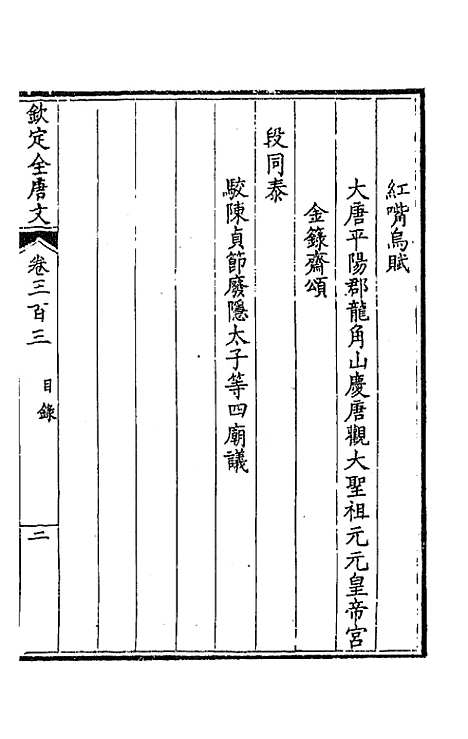 紅嘴烏賦
大唐平陽郡龍角山慶唐觀大聖祖元元皇帝宮
金籙齋頌
段同泰
駮陳貞節廢隱太子等四廟議
欽定全唐文 卷三百三 目錄 二